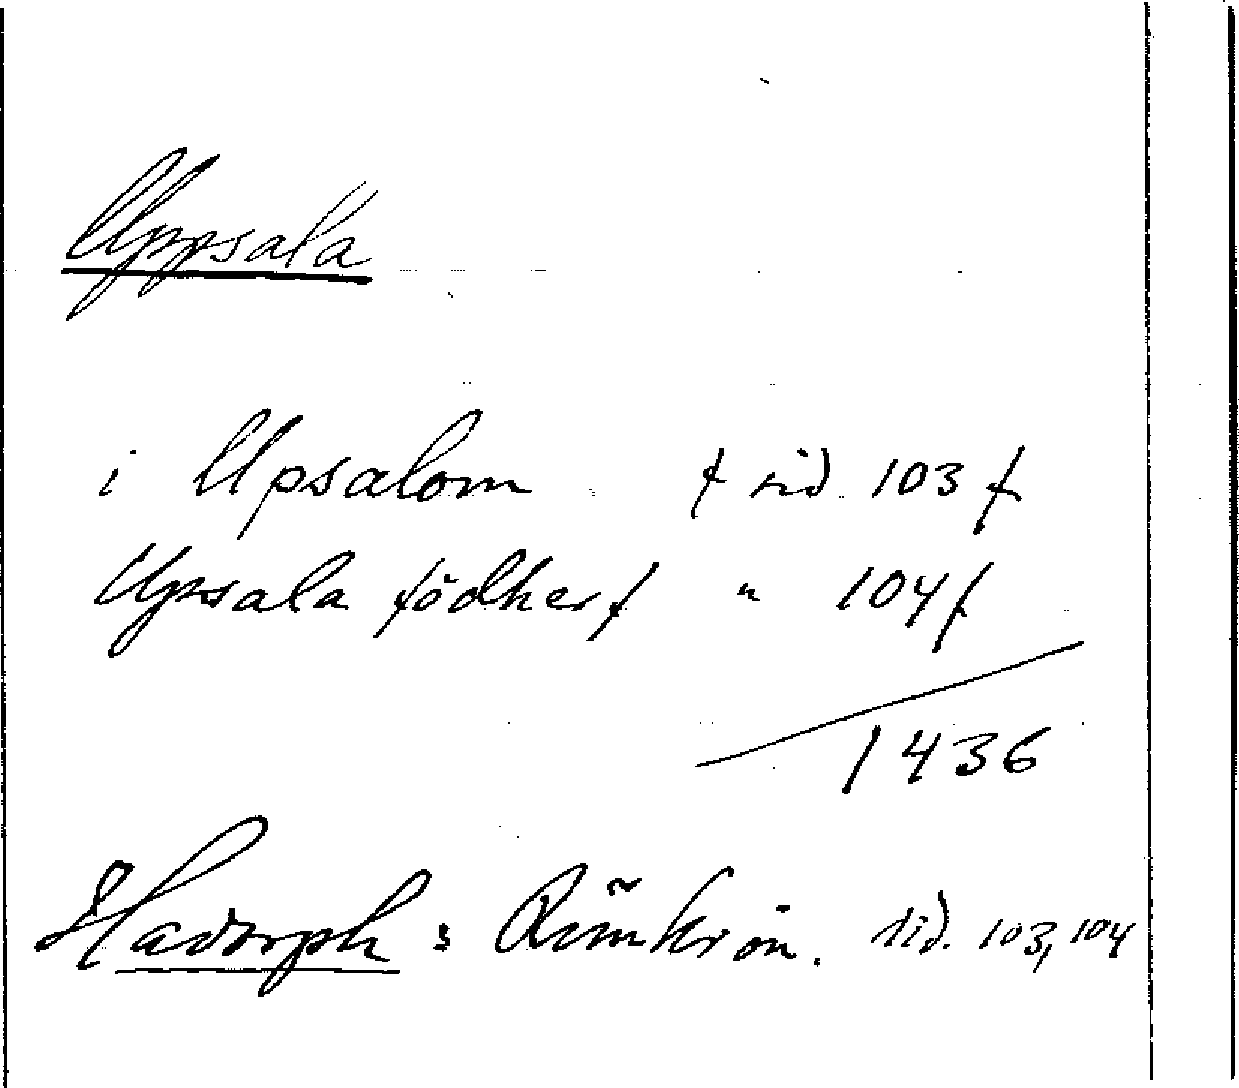 Uppsala
i Upsalom f sid. 103 f
Upsala födher f " 104 f
1436
Hadorph : Rimkrön. sid. 103, 104